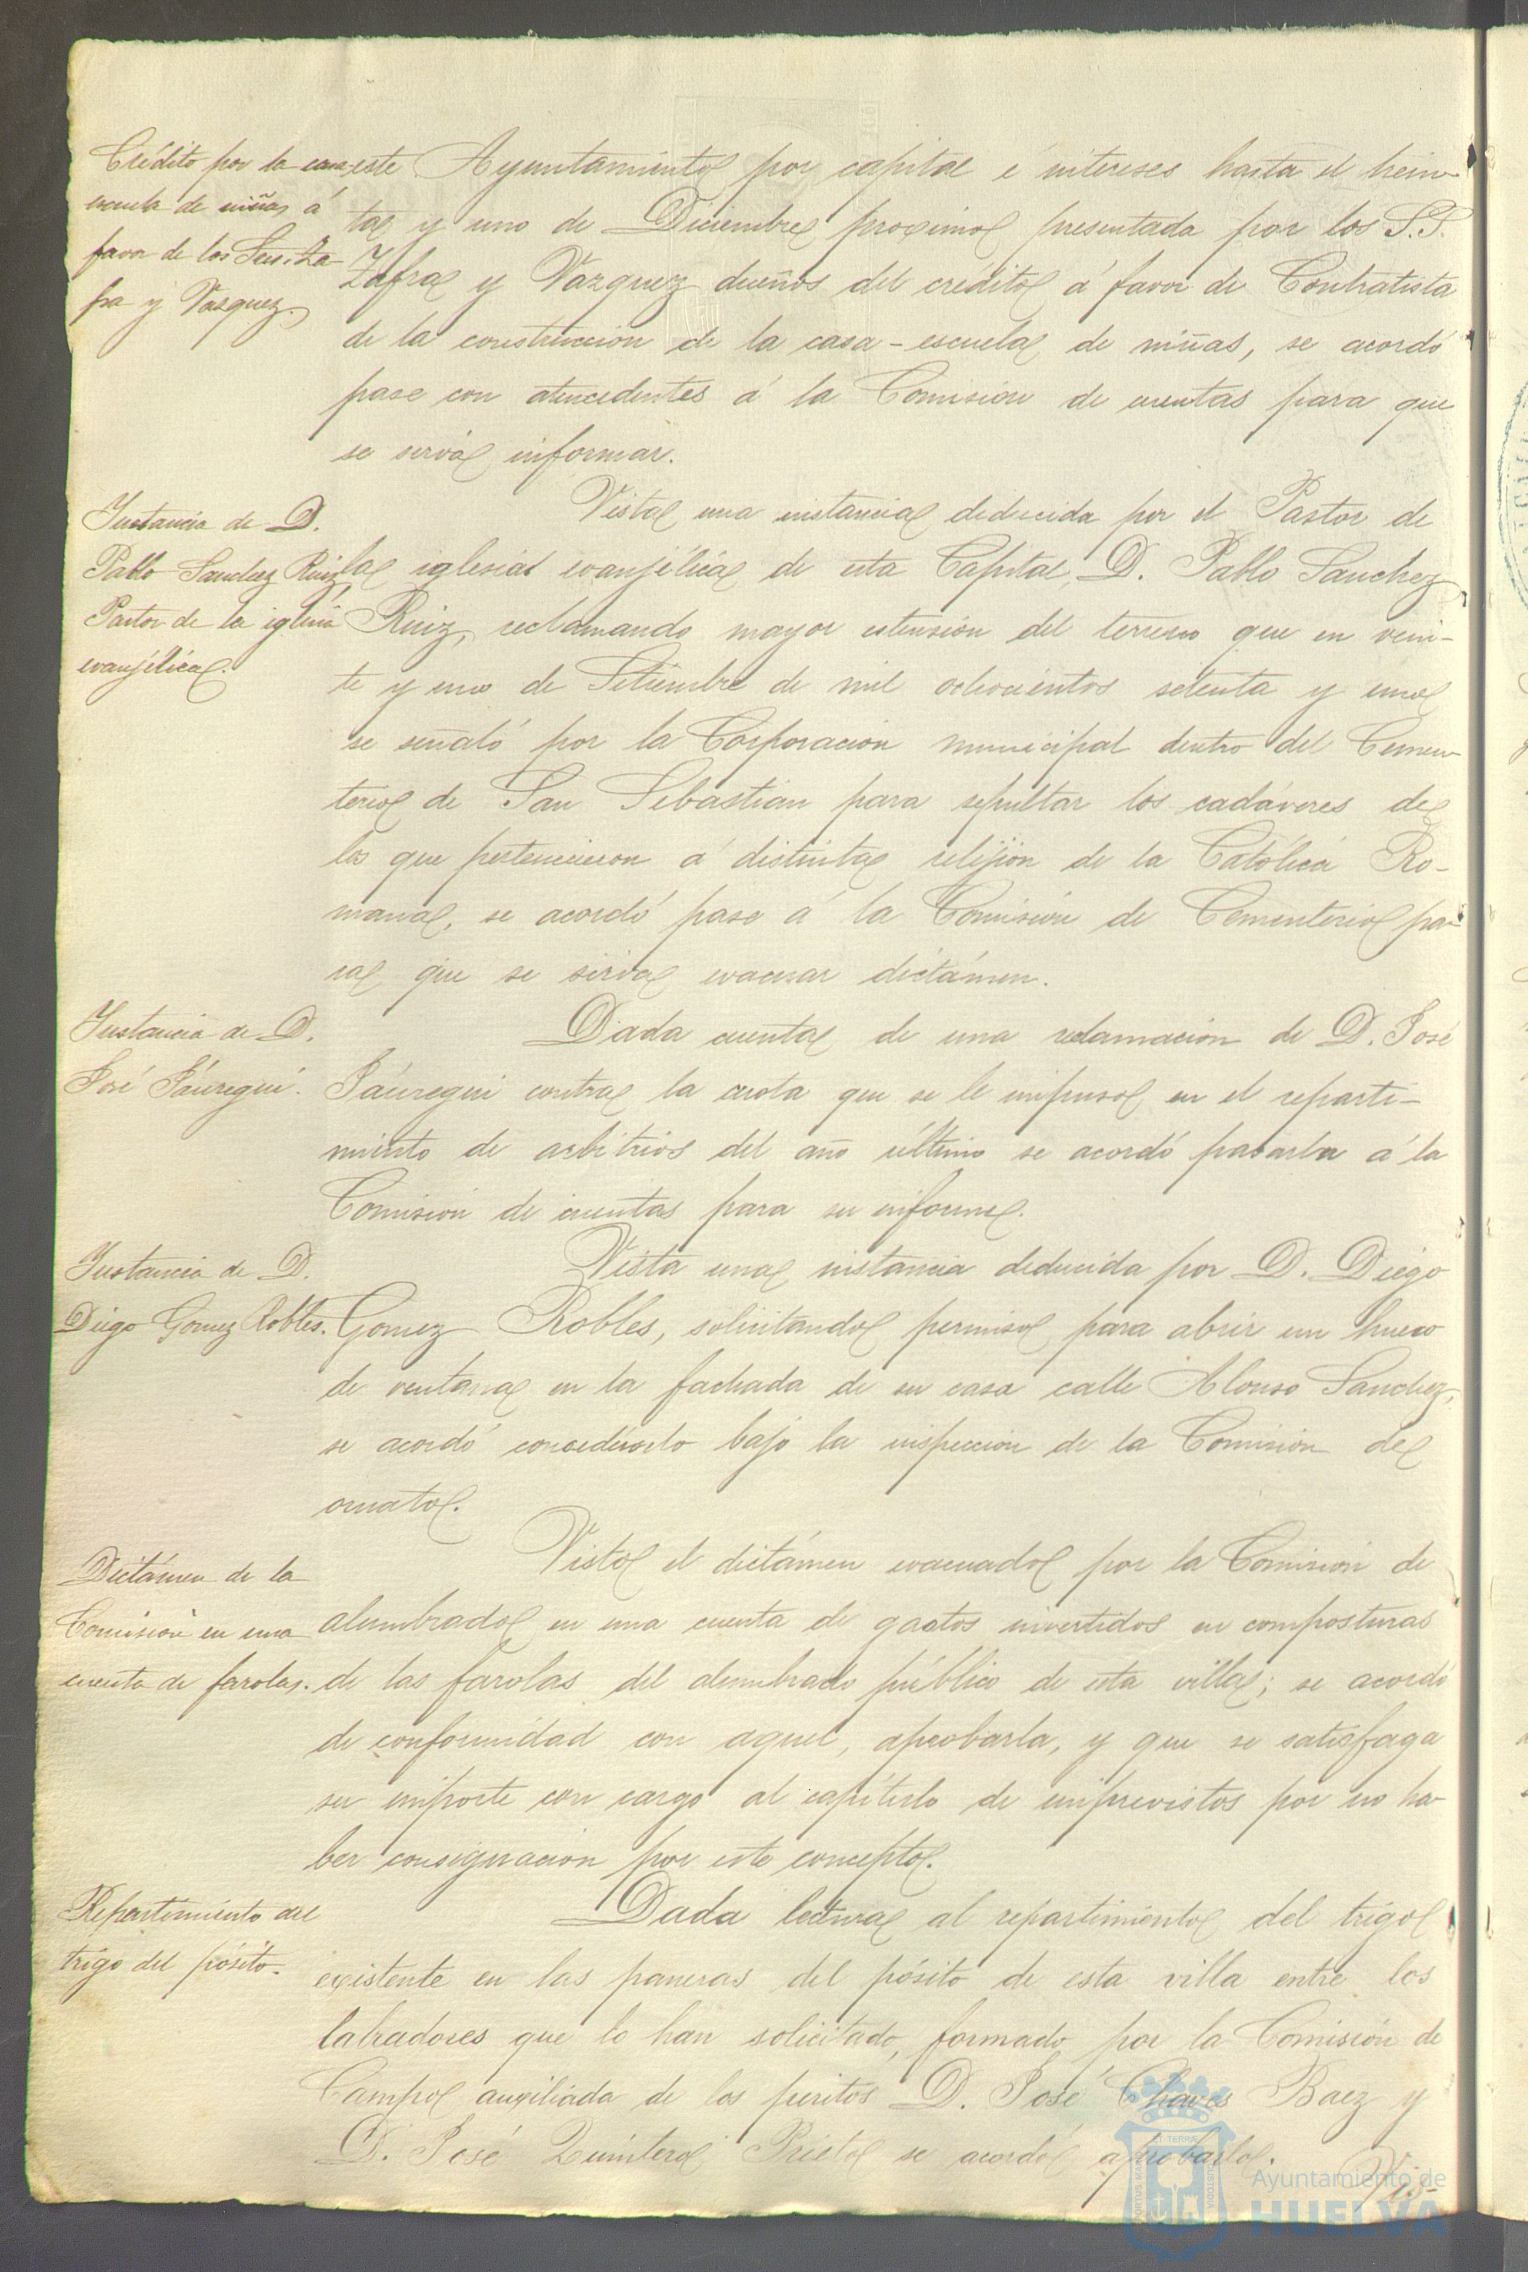 Crédito por la casa
escuela de niñas á
favor de los Sres. Za-
fra y Vazquez.
este Ayuntamiento por capital é intereses hasta el trein-
ta y uno de Diciembre procsimo presentada por los S.S.
Zafra y Vazquez dueños del credito á favor de Contratista
de la construccion de la casa-escuela de niñas, se acordó
pase con atencedentes á la Comision de cuentas para que
se servia informar.
Instancia de D.
Pablo Sanchez Ruiz
Pastor de la iglesia
evanjélica.
Vista una instancia deducida por el Pastor de
la iglesia evanjélica de esta Capital, D. Pablo Sanchez
Ruiz, reclamando mayor estension del terreno que en vein-
te y uno de Setiembre de mil ochocientos setenta y uno
se señaló por la Corporacion municipal dentro del Cemen-
terio de San Sebastian para sepultar los cadáveres de
los que pertenecieron á distinta relijion de la Católica Ro-
mana, se acordó pase á la Comision de Cementerio pa-
ra que se sirva evacuar dictámen.
Instancia de D.
José Jáuregui.
Dada cuenta de una reclamacion de D. José
Jáuregui contra la cuota que se le impuso en el reparti-
miento de arbitrios del año último se acordó pasarla á la
Comision de cuentas para su informe.
Instancia de D.
Diego Gomez Robles.
Vista una instancia deducida por D. Diego
Gomez Robles, solicitando permiso para abrir un hueco
de ventana en la fachada de su casa calle Alonso Sanchez,
se acordó concederlo bajo la inspeccion de la Comision de
ornato.
Dictámen de la
Comision en una
cuenta de farolas.
Visto el dictámen evacuado por la Comision de
alumbrado en una cuenta de gastos invertidos en composturas
de las farolas del alumbrado público de esta villa; se acordó
de conformidad con aquel, aprobarla, y que se satisfaga
su importe con cargo al capítulo de imprevistos por no ha-
ber consignacion por este concepto.
Repartimiento del
trigo del pósito.
Dada lectura al repartimiento del trigo
existente en las paneras del pósito de esta villa entre los
labradores que lo han solicitado, formado por la Comision de
Campo auxiliada de los peritos D. José Chaves Baez y
D. José Quintero Prieto se acordó aprobarlo. Vis-
Ayuntamiento de
HUELVA